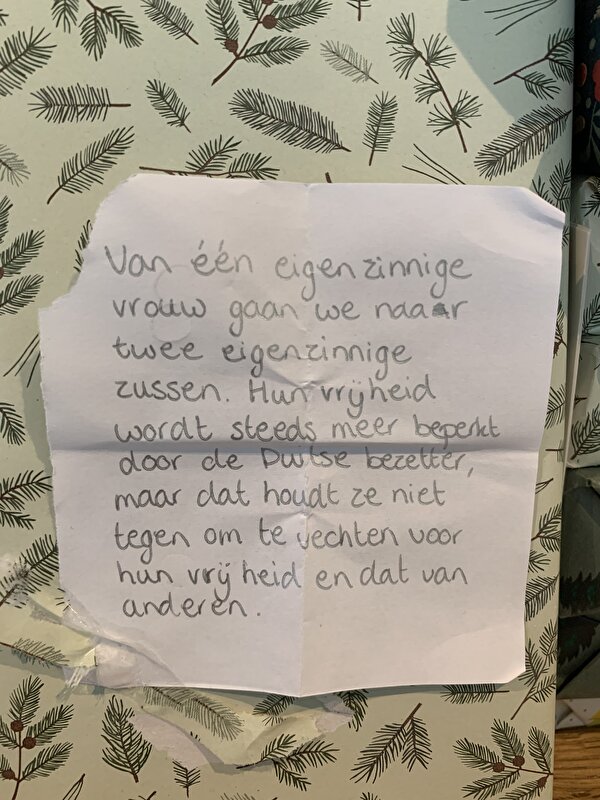 Van één eigenzinnige
vrouw gaan we naar
twee eigenzinnige
zussen. Hun vrijheid
wordt steeds meer beperkt
door de Duitse bezetter,
maar dat houdt ze niet
tegen om te vechten voor
hun vrijheid en dat van
anderen.